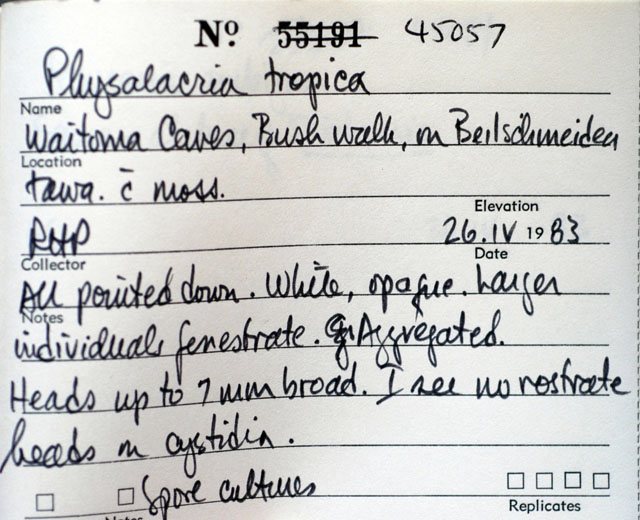 Nº 55191 45057
Physalacria tropica
Name
Waitoma Caves, Bush walk, on Beilschmeidea
Location
tawa. c̄ moss.
Elevation
RHP
26.IV 1983
Collector
Date
All pointed down. White, opaque. Larger
Notes
individuals fenestrate. Aggregated.
Heads up to 7 mm broad. I see no rostrate
heads on cystidia.
Spore cultures
Notes
Replicates